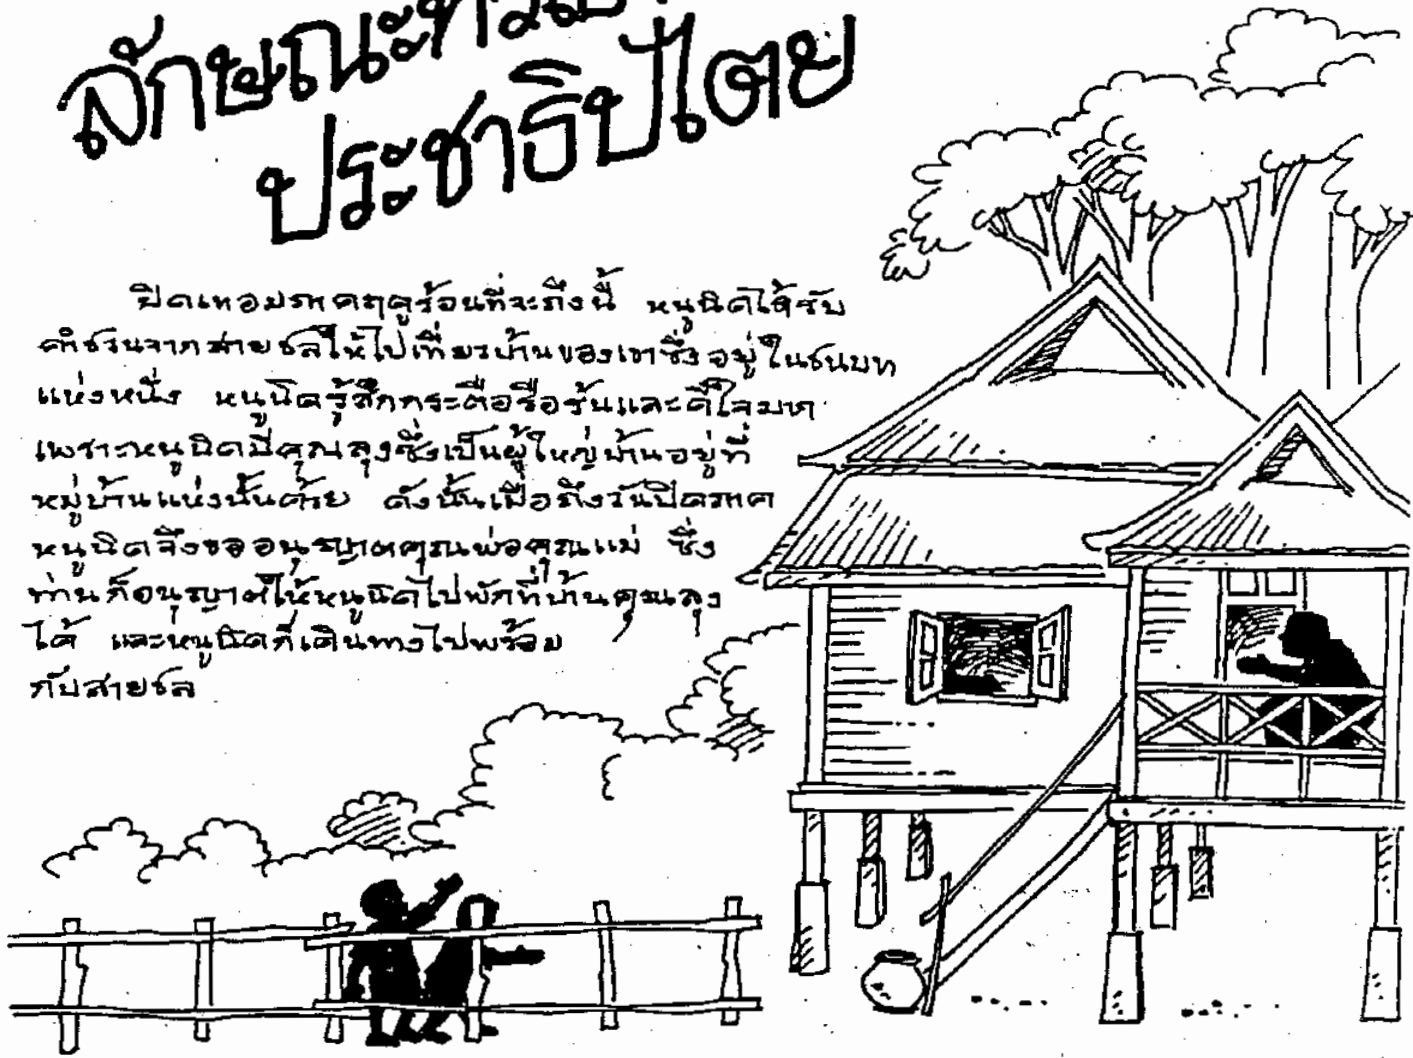 ลักษณะ
ประชาธิปไตย
ปิดเทอมภาคฤดูร้อนที่จะถึงนี้ หนูนิดได้รับ
คำชวนจากสายชลให้ไปเที่ยวบ้านของเขาซึ่งอยู่ในชนบท
แห่งหนึ่ง หนูนิดรู้สึกกระตือรือร้นและดีใจมาก
เพราะหนูนิดมีคุณลุงซึ่งเป็นผู้ใหญ่บ้านอยู่ที่
หมู่บ้านแห่งนั้นด้วย ดังนั้นเมื่อถึงวันปิดภาค
หนูนิดจึงขออนุญาตคุณพ่อคุณแม่ ซึ่ง
ท่านก็อนุญาตให้หนูนิดไปพักที่บ้านคุณลุง
ได้ และหนูนิดก็เดินทางไปพร้อม
กับสายชล